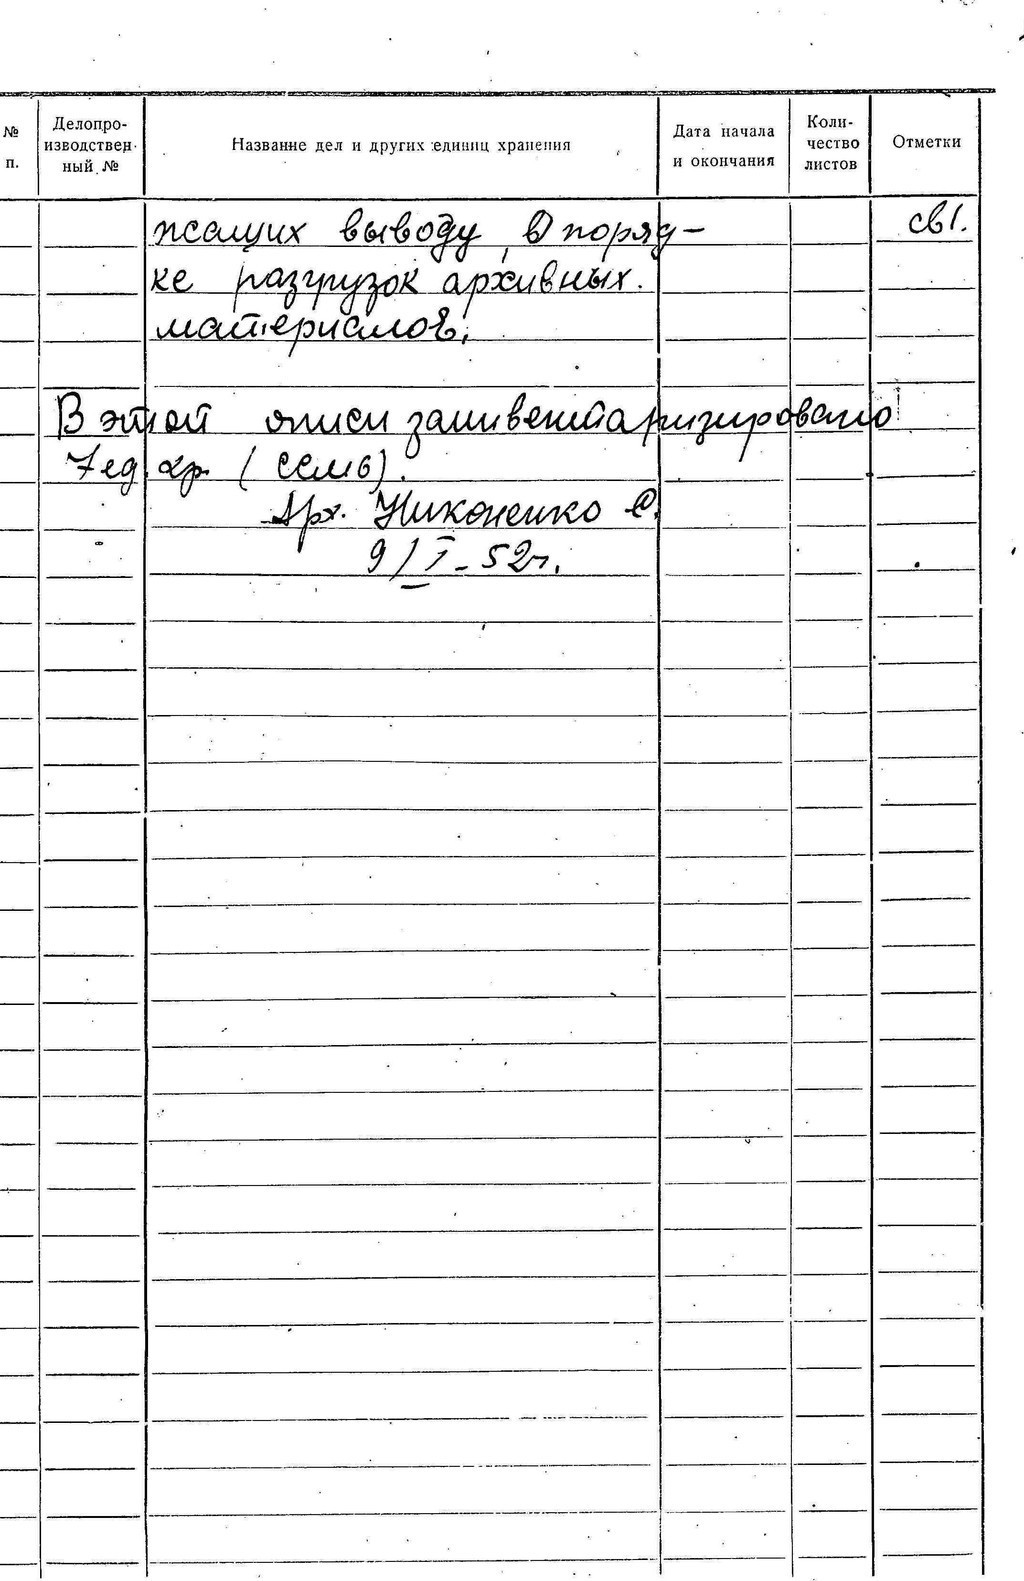 № п. Делопро-изводствен-ный № Название дел и других единиц хранения Дата начала и окончания Коли-чество листов Отметки
жащих выводу в поряд- св1.
ке разгрузок архивных.
материалов.
В этой описи заинвентаризировано
7 ед. хр. (семь).
Арх. Никоненко С.
9/I-52г.